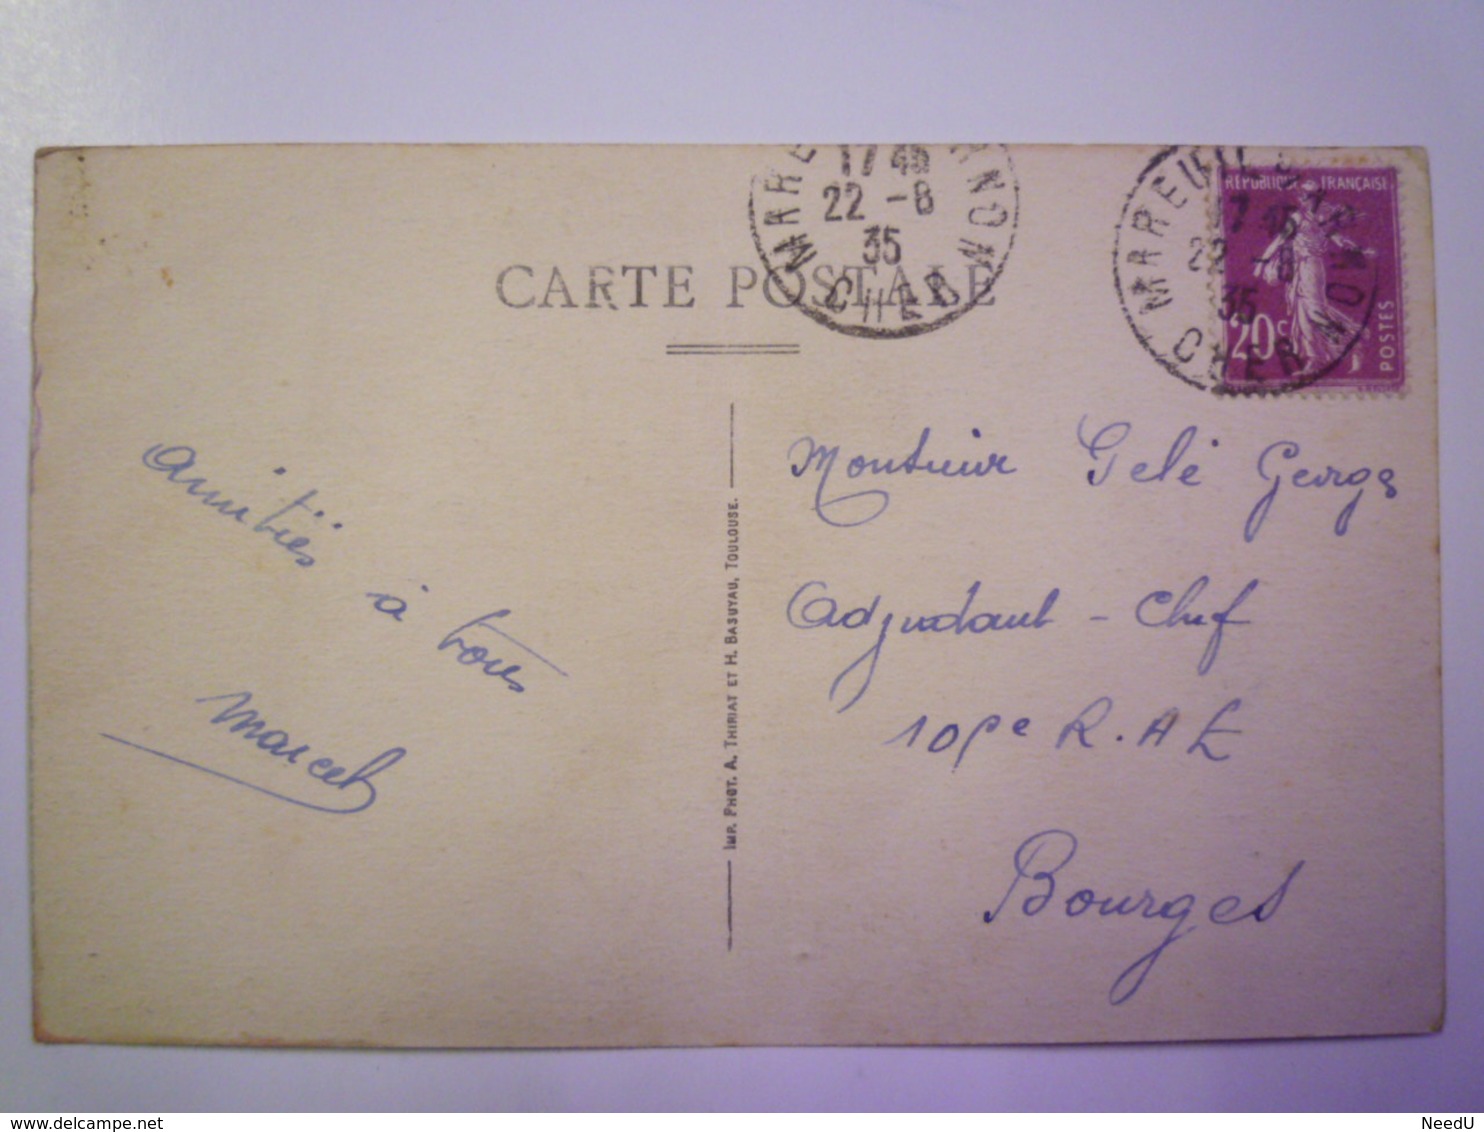 MAREUIL S ARNON
17 45
22 - 8
35
CHER
MAREUIL S ARNON
17 45
22 - 8
35
CHER
RÉPUBLIQUE FRANÇAISE
20c
POSTES
CARTE POSTALE
amitiés
à tous
Marcel
IMP. PHOT. A. THIRIAT ET H. BASUYAU, TOULOUSE.
Monsieur Gelé Georges
Adjudant - Chef
R.A.L
Bourges
NeedU
www.delcampe.net